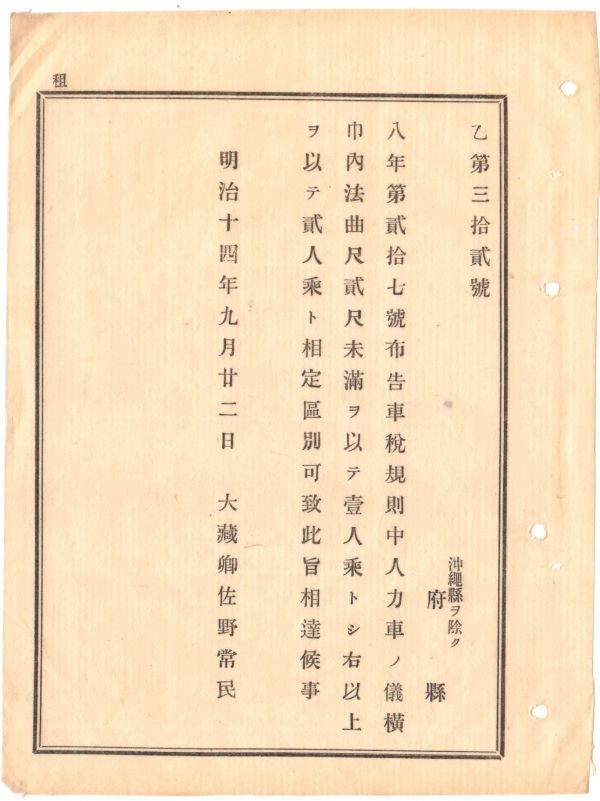 租
乙第三拾貳號
沖繩縣ヲ除ク
府縣
八年第貳拾七號布告車稅規則中人力車ノ儀橫
巾內法曲尺貳尺未滿ヲ以テ壹人乘トシ右以上
ヲ以テ貳人乘ト相定區別可致此旨相達候事
明治十四年九月廿二日 大藏卿佐野常民